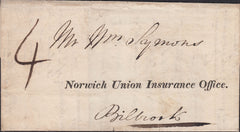 4
Mr Wm Symons
Norwich Union Insurance Office.
Bilbrook